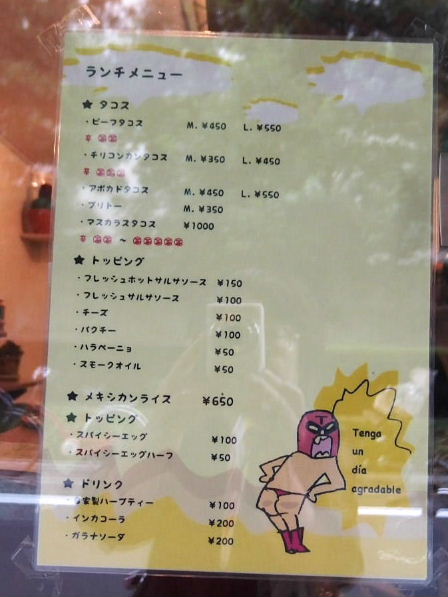 ランチメニュー
★ タコス
・ビーフタコス M. ¥450 L. ¥550
辛
・チリコンカンタコス M. ¥350 L. ¥450
辛
・アボカドタコス M. ¥450 L. ¥550
・ブリトー M. ¥350
・マスカラスタコス ¥1000
辛 ~
★ トッピング
・フレッシュホットサルサソース ¥150
・フレッシュサルサソース ¥100
・チーズ ¥100
・パクチー ¥100
・ハラペーニョ ¥50
・スモークオイル ¥50
★ メキシカンライス ¥650
★ トッピング
・スパイシーエッグ ¥100
・スパイシーエッグハーフ ¥50
★ ドリンク
・自家製ハーブティー ¥100
・インカコーラ ¥200
・ガラナソーダ ¥200
Tenga
un
día
agradable